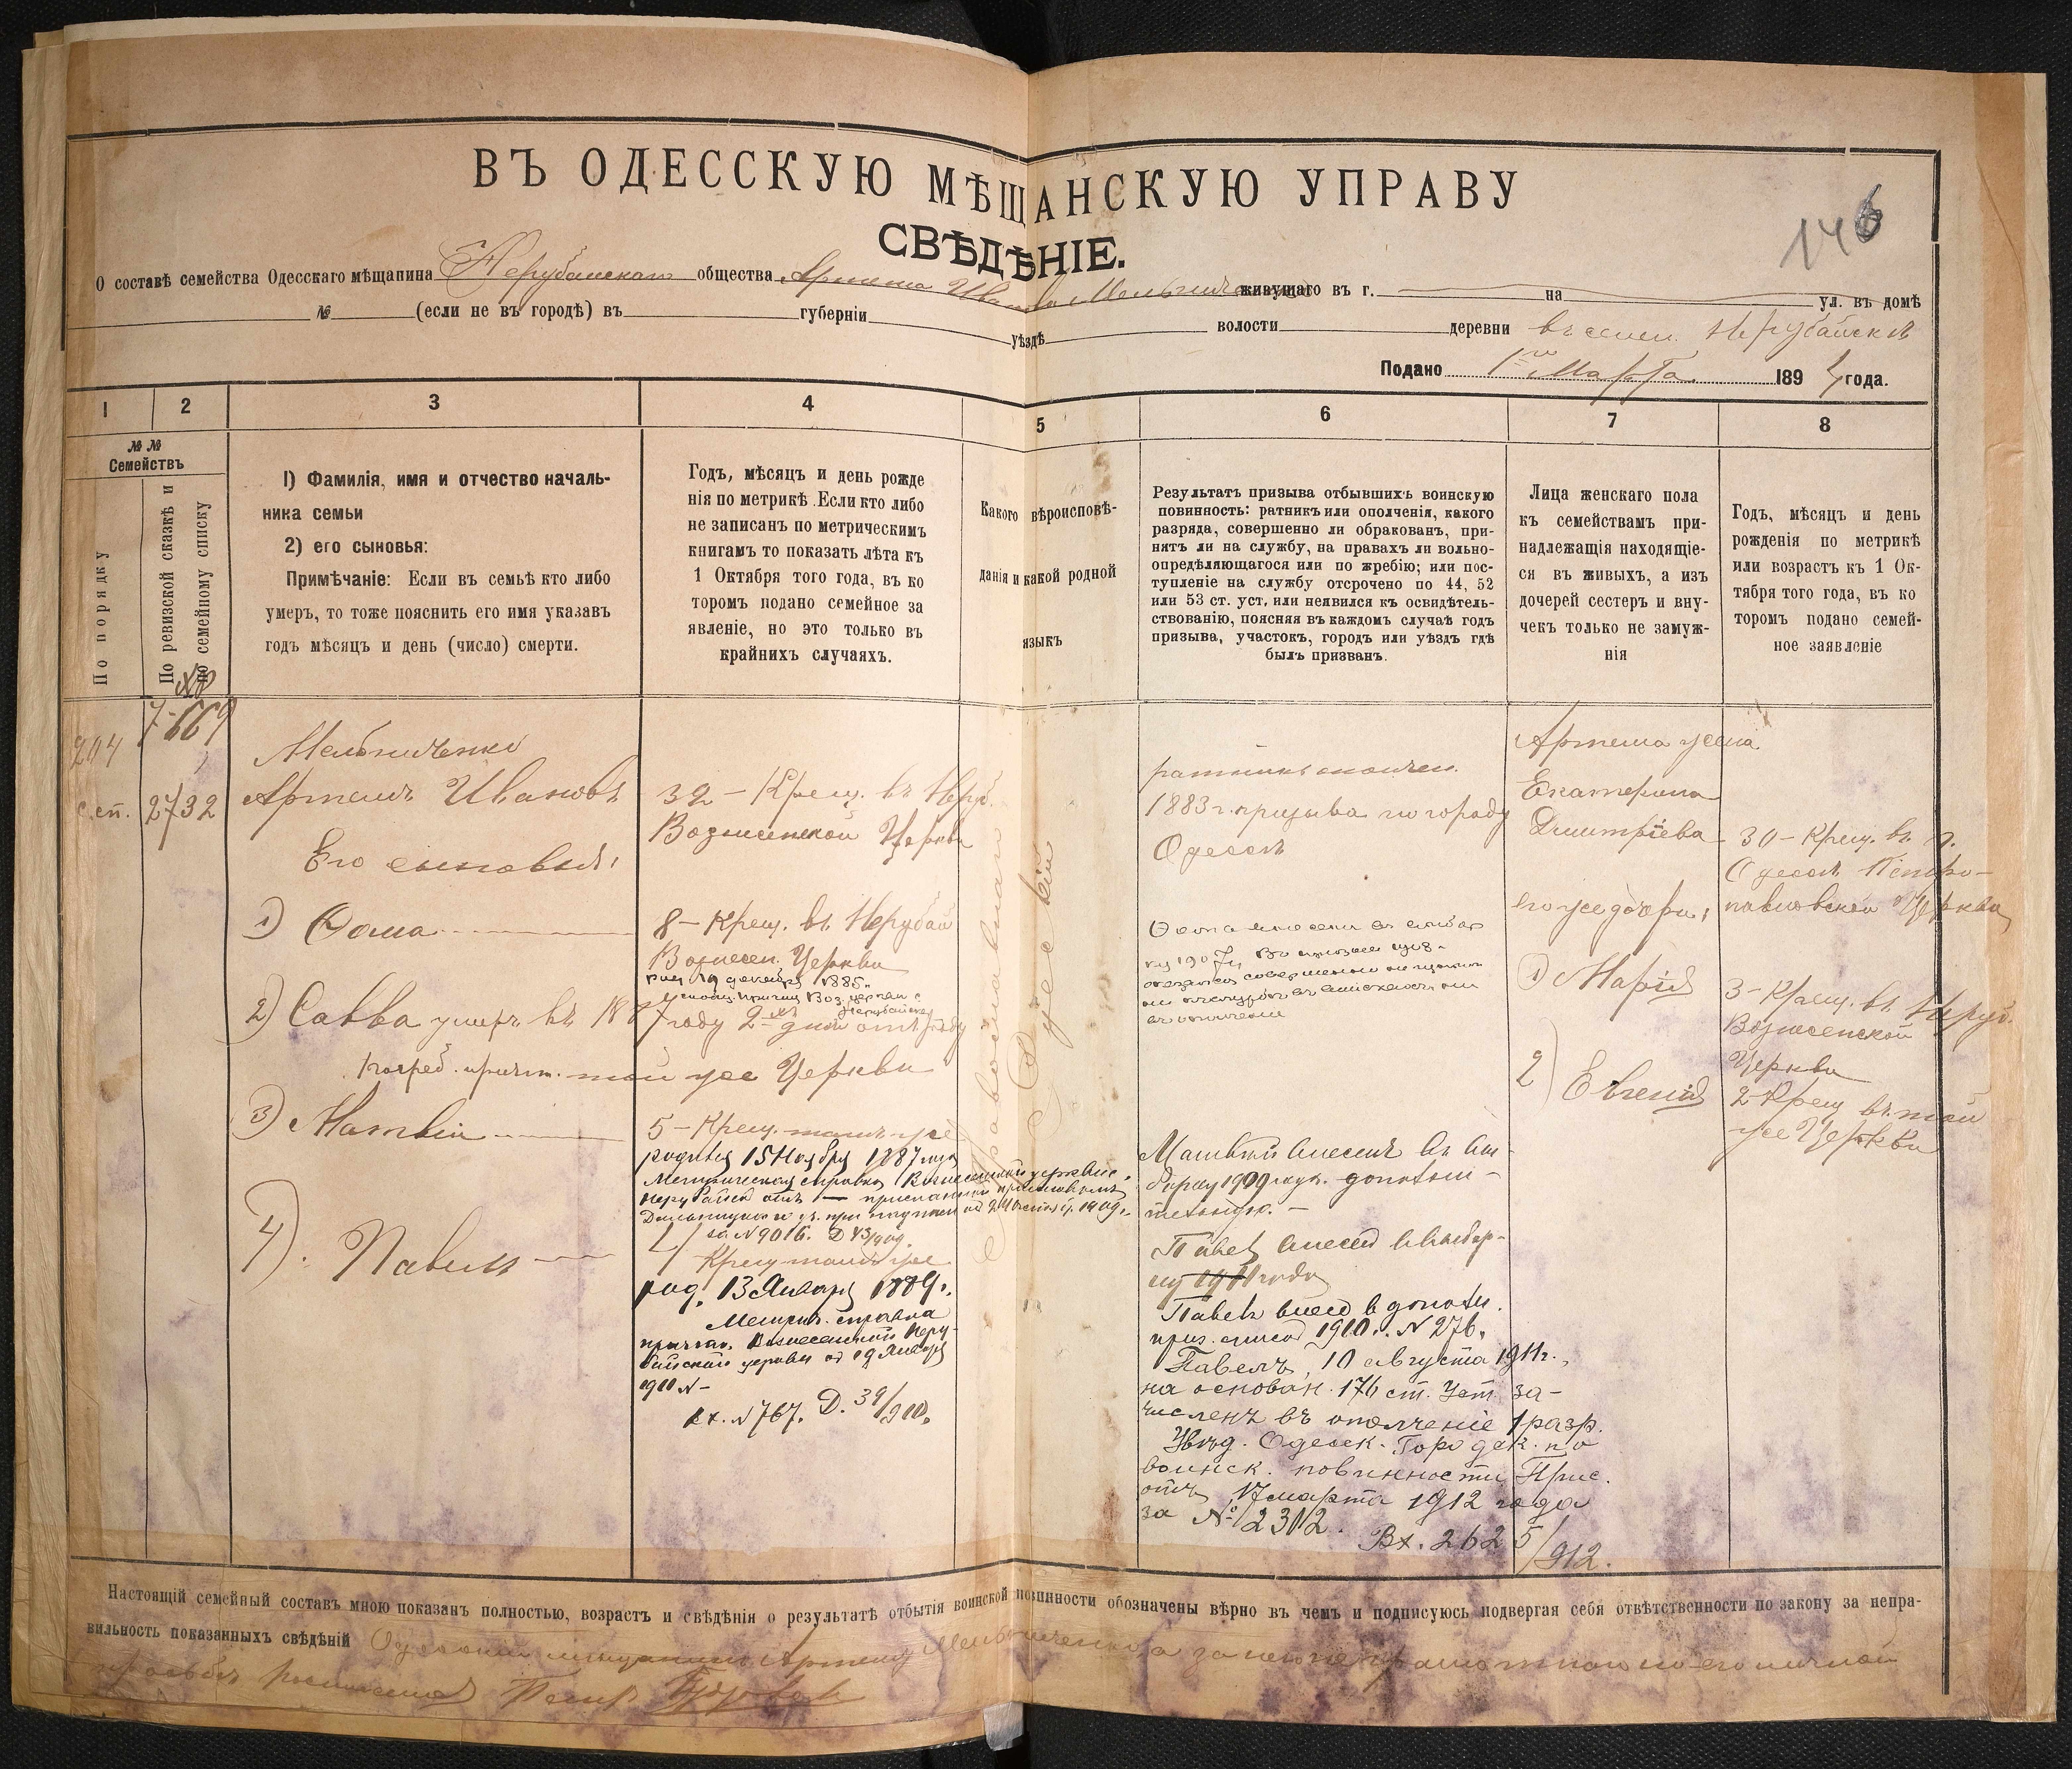 ВЪ ОДЕССКУЮ МѢЩАНСКУЮ УПРАВУ
СВѢДѢНІЕ.
146
О составѣ семейства Одесскаго мѣщанина Нерубайскаго общества Артема Иванова Мельниченко живущаго въ г. на ул. въ домѣ
№ (если не въ городѣ) въ губерніи уѣздѣ волости деревни въ селен. Нерубайскѣ
Подано 1го Марта 1894 года.
1 2 3 4 5 6 7 8
№ №
Семействъ
По порядку
По ревизской сказкѣ и
по семейному списку
1) Фамилія, имя и отчество началь-
ника семьи
2) его сыновья:
Примѣчаніе: Если въ семьѣ кто либо
умеръ, то тоже пояснить его имя указавъ
годъ мѣсяцъ и день (число) смерти.
Годъ, мѣсяцъ и день рожде
нія по метрикѣ. Если кто либо
не записанъ по метрическимъ
книгамъ то показать лѣта къ
1 Октября того года, въ ко
торомъ подано семейное за
явленіе, но это только въ
крайнихъ случаяхъ.
Какого вѣроисповѣ-
данія и какой родной
языкъ
Результатъ призыва отбывшихъ воинскую
повинность: ратникъ или ополченія, какого
разряда, совершенно ли обракованъ, при-
нятъ ли на службу, на правахъ ли вольно-
опредѣляющагося или по жребію; или пос-
тупленіе на службу отсрочено по 44, 52
или 53 ст. уст, или неявился къ освидѣтель-
ствованію, поясняя въ каждомъ случаѣ годъ
призыва, участокъ, городъ или уѣздъ гдѣ
былъ призванъ.
Лица женскаго пола
къ семействамъ при-
надлежащія находящіе-
ся въ живыхъ, а изъ
дочерей сестеръ и вну-
чекъ только не замуж-
нія
Годъ, мѣсяцъ и день
рожденія по метрикѣ
или возрастъ къ 1 Ок-
тября того года, въ ко
торомъ подано семей-
ное заявленіе
204
с.сп.
7-669
2732
Мельниченко
Артемъ Ивановъ
Его сыновья:
1) Ѳома
2) Савва умеръ въ 1887 году 2-хъ дней отъ роду
погреб. причт. той же Церкви
3) Матвѣй
4). Павелъ
32 – Крещ. въ Неруб.
Вознесенской Церкви
8 – Крещ. въ Нерубай
Вознесен. Церкви
род 19 декабря 1885г.
5 – Крещ. тамъ же
родился 15 Ноября 1887 года
Метрическая справка Вознесенской церкви с.
за №9016. Д 43/909.
4/ Крещ тамъ же
род. 13 Января 1889г.
Метрич. справка
причта. Вознесенской Неру-
байской церкви от 19 Января
1910 № –
Вх. №767. Д. 39/910.
Православнаго
Русскій
ратникъ ополчен.
1883 г. призыва по городу
Одессѣ
Ѳома внесенъ въ
1907г. Въ призывъ 1908
Матвѣй внесенъ въ вы-
борку 1909 года. дополни-
тельную. –
Павел внесен въ выбор-
ку 1911 года
Павелъ внес в дополн.
приз. список 1910г. №276.
Павелъ, 10 августа 1911г.,
на основан. 176 ст. Уст. за-
численъ въ ополченіе 1 разр.
Увѣд. Одесск. Городск. по
воинск. повинности Прис.
отъ 17 марта 1912 года
за №12312.
Вх. 2625/912.
Артема жена
Екатерина
Дмитріева
его же дочери:
1) Марія
2) Евгенія
30 – Крещ. въ г.
Одессѣ Петро-
павловской Церкви
3 – Крещ. въ Неруб.
Вознесенской
Церкви
2 Крещ въ той
же Церкви
Настоящій семейный составъ мною показанъ полностью, возрастъ и свѣдѣнія о результатѣ отбытія воинской повинности обозначены вѣрно въ чемъ и подписуюсь подвергая себя отвѣтственности по закону за непра-
вильность показанныхъ свѣдѣній Одесскій мѣщанинъ Артемъ Мельниченко, а за него неграмотнаго по его личной
просьбѣ росписался Петръ